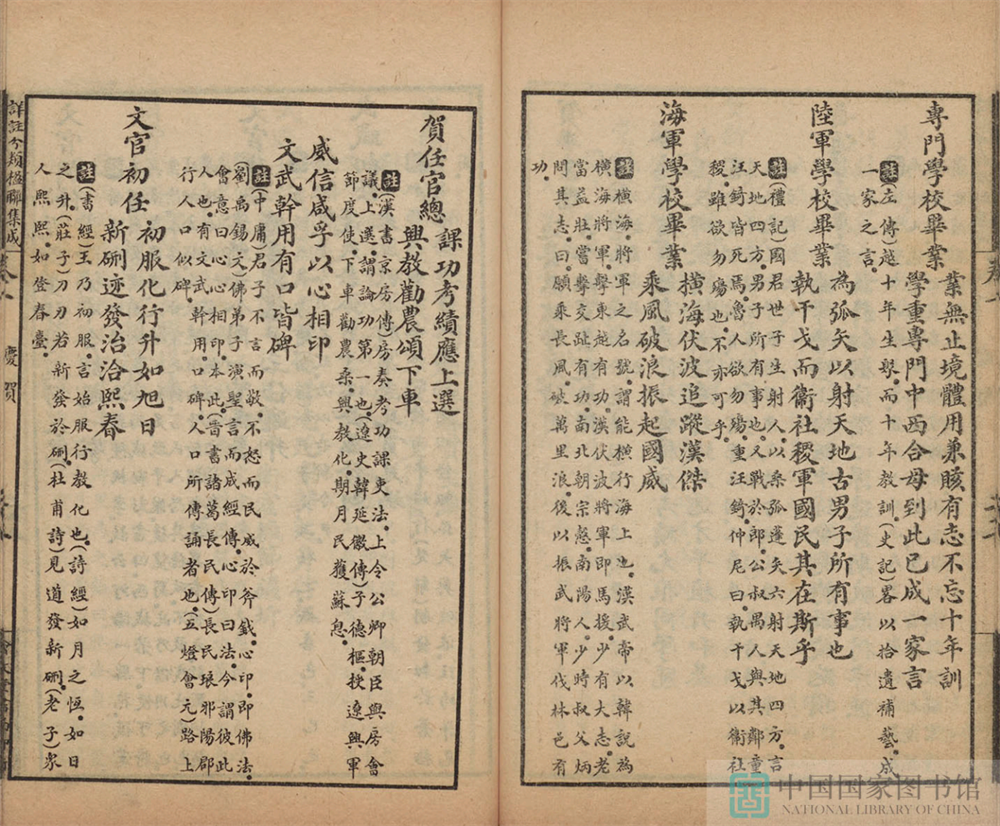 專門學校畢業
業無止境體用兼賅有志不忘十年訓
學重專門中西合毋到此已成一家言
註(左傳)越十年生聚。而十年教訓。(史記)畧以拾遺補藝。成
一家之言。
陸軍學校畢業
為弧矢以射天地古男子所有事也
執干戈而衞社稷軍國民其在斯乎
註(禮記)國君世子生。射人以桑弧蓬矢六。射天地四方。言
天地四方。男子所有事也。人戰於郎。公叔禺人與其鄰童
汪錡皆死焉。魯人欲勿殤。重汪錡。仲尼曰。執干戈以衞社
稷。雖欲勿殤也。不亦可乎。
海軍學校畢業
橫海伏波追蹤漢傑
乘風破浪振起國威
註橫海。將軍之名號。謂能橫行海上也。漢武帝以韓說為
橫海將軍。擊東越有功。漢伏波將軍即馬援。少有大志。老
當益壯。嘗擊交趾有功。南北朝宗慤。南陽人。少時叔父炳
問其志。曰。願乘長風。破萬里浪。後以振武將軍伐林邑有
功。
賀任官總
課功考績應上選
興教勸農頌下車
註(漢書京房傳)房奏考功課吏法。上令公卿朝臣與房會
議。上選。謂論功第一也。(遼史韓延徽傳)子德樞。授遼興軍
節度使。下車勸農桑。興教化。期月民獲蘇息。
威信咸孚以心相印
文武幹用有口皆碑
註(中庸)君子不言而敬。不怒而民威於斧鉞。心印。即佛法。
(劉禹錫文)佛弟子演聖言而成經。傳心印曰法。今謂彼此
會意曰心心相印。本此。(晉書諸葛長民傳)長民琅邪陽郡
人也。有文武幹用。口碑。人口所傳誦者也。(五燈會元)路上
行人口似碑。
文官初任
初服化行升如旭日
新硎迹發治洽熙春
註(書經)王乃初服。言始服行教化也。(詩經)如月之恆。如日
之升。(莊子)刀刃若新發於硎。(杜甫詩)見道發新硎。(老子)衆
人熙熙。如登春臺。
詳註分類楹聯集成
卷八
慶賀
中国国家图书馆
NATIONAL LIBRARY OF CHINA